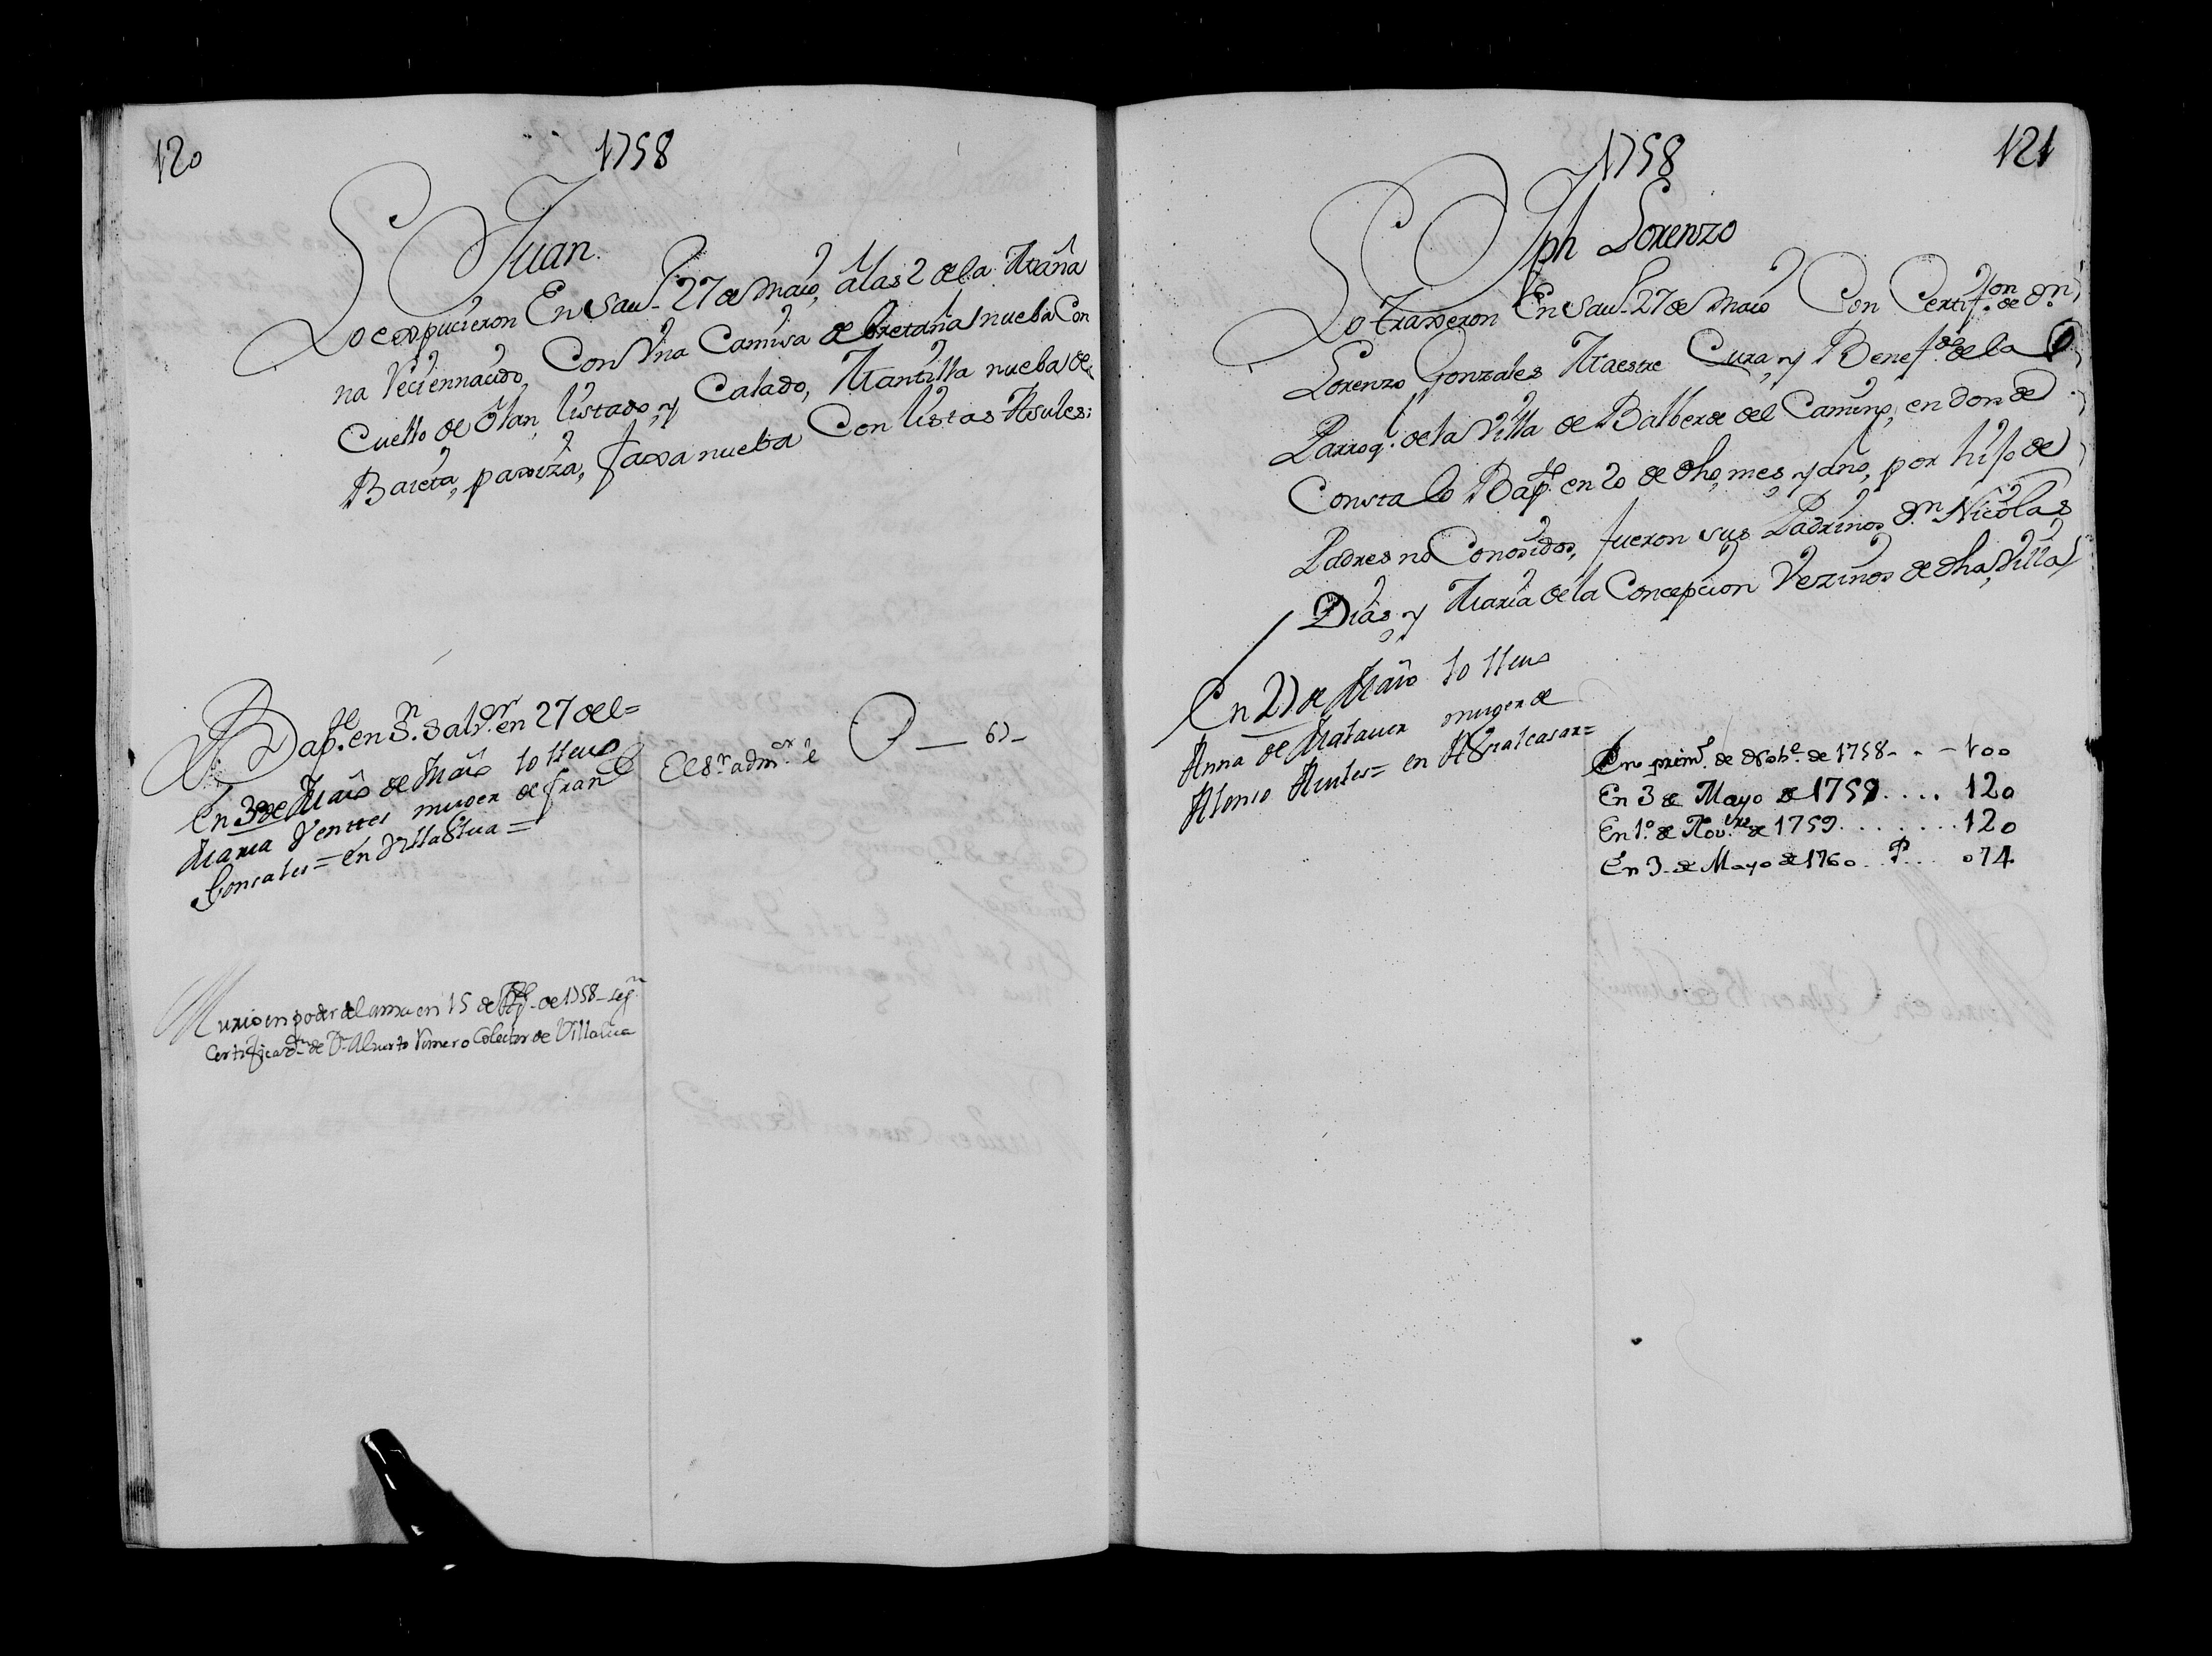 120
1758
Juan
Lo expucieron En Sau. 27 de Maio, â las 2 de la Maña
na Reciennacido, Con Vna Camisa de bretaña nueba Con
Cuello de Olan, listado, y Calado, Mantilla nueba de
Baieta, pardiza, faxa nueba Con listas Asules;
Bap.do en S.n Salv.or en 27 del=
En 3 de Maio de Maio lo lleuo
Maria Venttes muger de fran.co
Gonsales= en Villalua=
El S.r adm.or l
P — 6) —
Murio en poder del ama en 15 de de 1758- seg.n
Certificaz.on de D.n Aluerto Romero Colector de Villalua
1758
121
Jph Lorenzo
Lo traxeron En Sau. 27 de Maio Con Certif.on de D.n
Lorenzo Gonzales Maestre Cura, y Benef.do de la
Parroq.l de la Villa de Balberde del Camino, en donde
Consta lo Bap.do en 20 de dho, mes, y año, por hijo de
Padres no Conosidos, fueron sus Padrinos D.n Nicolas
Dias, y Maria de la Concepcion Vezinos de dha, Villa
En 27 de Maio lo lleuo
Anna de Matauer muger de
Alonso Antes= en Asnalcasar=
En prim.o de Nob.e de 1758 - . - 100
En 3 de Mayo de 1759 . . . . 120
En 1.o de Nov.bre de 1759 . . . . . . . 120
En 3 - de Mayo de 1760 . . P . . . 074